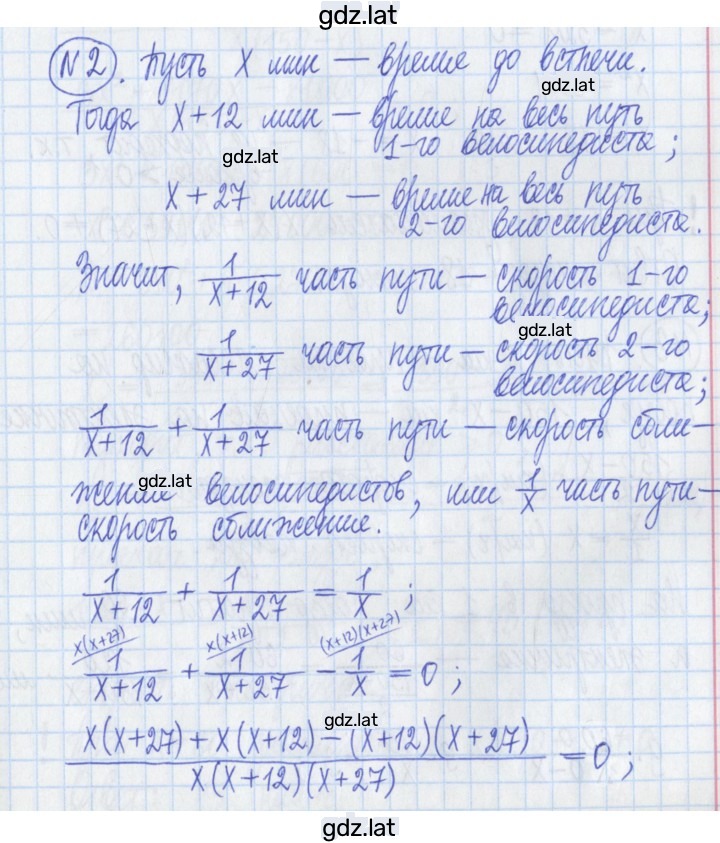 gdz.lat
№2. Пусть x мин — время до встречи.
gdz.lat
Тогда x+12 мин — время на весь путь
1-го велосипедиста;
gdz.lat
x+27 мин — время на весь путь
2-го велосипедиста.
Значит, 1/(x+12) часть пути — скорость 1-го
велосипедиста;
gdz.lat
1/(x+27) часть пути — скорость 2-го
велосипедиста;
1/(x+12) + 1/(x+27) часть пути — скорость сбли-
gdz.lat
жения велосипедистов, или 1/x часть пути —
скорость сближение.
1/(x+12) + 1/(x+27) = 1/x ;
x(x+27) x(x+12) (x+12)(x+27)
1/(x+12) + 1/(x+27) − 1/x = 0 ;
gdz.lat
(x(x+27) + x(x+12) − (x+12)(x+27))/(x(x+12)(x+27)) = 0 ;
gdz.lat